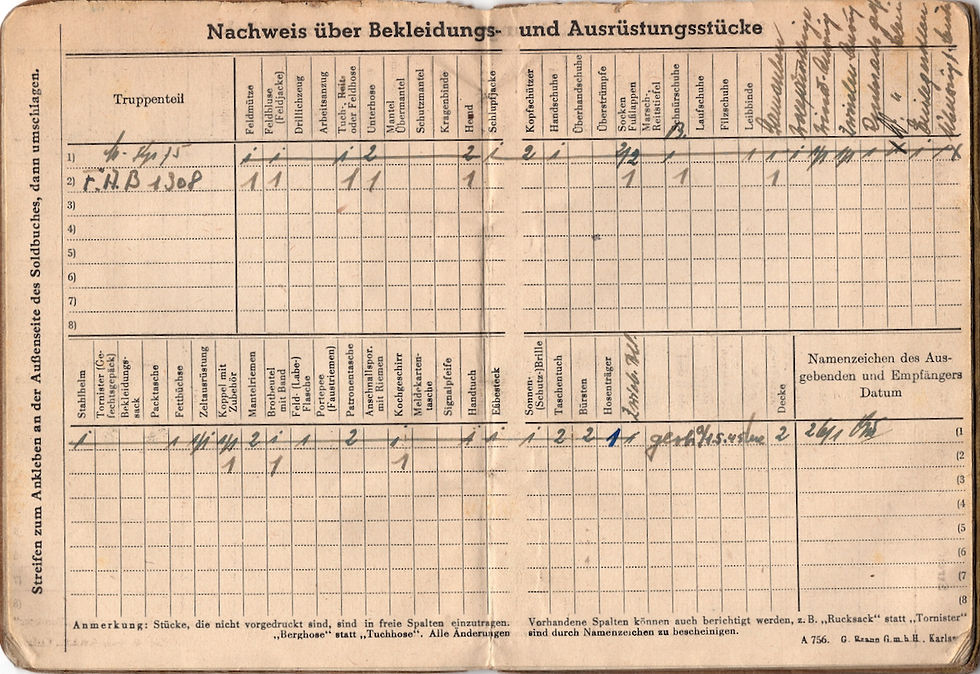 Nachweis über Bekleidungs- und Ausrüstungsstücke
Streifen zum Ankleben an der Außenseite des Soldbuches, dann umschlagen.
Truppenteil
Feldmütze
Feldbluse (Feldjacke)
Drillichzeug
Arbeitsanzug
Tuch-, Reit- oder Feldhose
Unterhose
Mantel Übermantel
Schutzmantel
Kragenbinde
Hemd
Schlupfjacke
Kopfschützer
Handschuhe
Überhandschuhe
Überstrümpfe
Socken Fußlappen
Marsch-, Reitstiefel
Schnürschuhe
Laufschuhe
Filzschuhe
Leibbinde
1) i i i 2 2 i 2 i 2/2 1 1 1 i
2) r. A. B 1308 1 1 1 1 1 1 1 1
3)
4)
5)
6)
7)
8)
Stahlhelm
Tornister (Gefechtsgepäck)
Bekleidungssack
Packtasche
Fettbüchse
Zeltausrüstung
Koppel mit Zubehör
Mantelriemen
Brotbeutel mit Band
Feld- (Labe-) Flasche
Portepee (Faustriemen)
Patronentasche
Anschnallspor. mit Riemen
Kochgeschirr
Meldekartentasche
Signalpfeife
Handtuch
Eßbesteck
Sonnen- (Schutz-)Brille
Taschentuch
Bürsten
Hosenträger
Decke
Namenzeichen des Ausgebenden und Empfängers
Datum
i 1 1/1 1/1 2 i 1 2 i 1 i i 2 2 1 1 2 26/1 (1
1 1 1 (2
(3
(4
(5
(6
(7
(8
Anmerkung: Stücke, die nicht vorgedruckt sind, sind in freie Spalten einzutragen. Vorhandene Spalten können auch berichtigt werden, z. B. „Rucksack“ statt „Tornister“
„Berghose“ statt „Tuchhose“. Alle Änderungen sind durch Namenzeichen zu bescheinigen.
A 756. G. Braun G.m.b.H., Karls